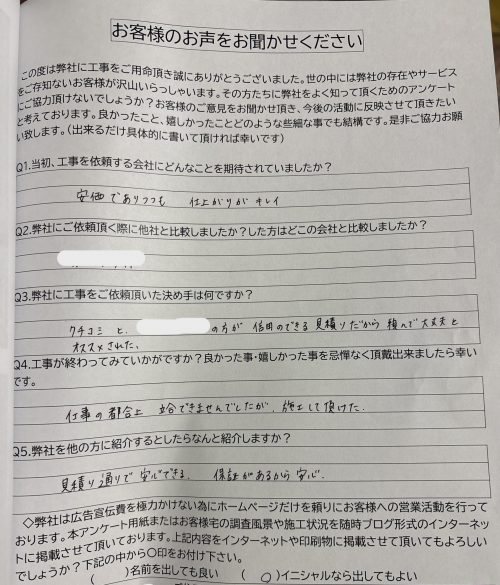 お客様のお声をお聞かせください
この度は弊社に工事をご用命頂き誠にありがとうございました。世の中には弊社の存在やサービス
をご存知ないお客様が沢山いらっしゃいます。その方たちに弊社をよく知って頂くためのアンケート
にご協力頂けないでしょうか？お客様のご意見をお聞かせ頂き、今後の活動に反映させて頂きたい
と考えております。良かったこと、嬉しかったことどのような些細な事でも結構です。是非ご協力お願
い致します。（出来るだけ具体的に書いて頂ければ幸いです）
Q1.当初、工事を依頼する会社にどんなことを期待されていましたか？
安価でありつつも 仕上がりがキレイ
Q2.弊社にご依頼頂く際に他社と比較しましたか？した方はどこの会社と比較しましたか？
Q3.弊社に工事をご依頼頂いた決め手は何ですか？
クチコミと、 の方が信用のできる見積りだから頼んで大丈夫と
オススメされた、
Q4.工事が終わってみていかがですか？良かった事・嬉しかった事を忌憚なく頂戴出来ましたら幸い
です。
仕事の都合上 立会できませんでしたが、施工して頂けた.
Q5.弊社を他の方に紹介するとしたらなんと紹介しますか？
見積り通りで安心できる. 保証があるから安心.
◇弊社は広告宣伝費を極力かけない為にホームページだけを頼りにお客様への営業活動を行って
おります。本アンケート用紙またはお客様宅の調査風景や施工状況を随時ブログ形式のインターネッ
トに掲載させて頂いております。上記内容をインターネットや印刷物に掲載させて頂いてもよろしい
でしょうか？下記の中から〇印をお付け下さい。
（ ）名前を出しても良い （ ○ ）イニシャルなら出してもよい